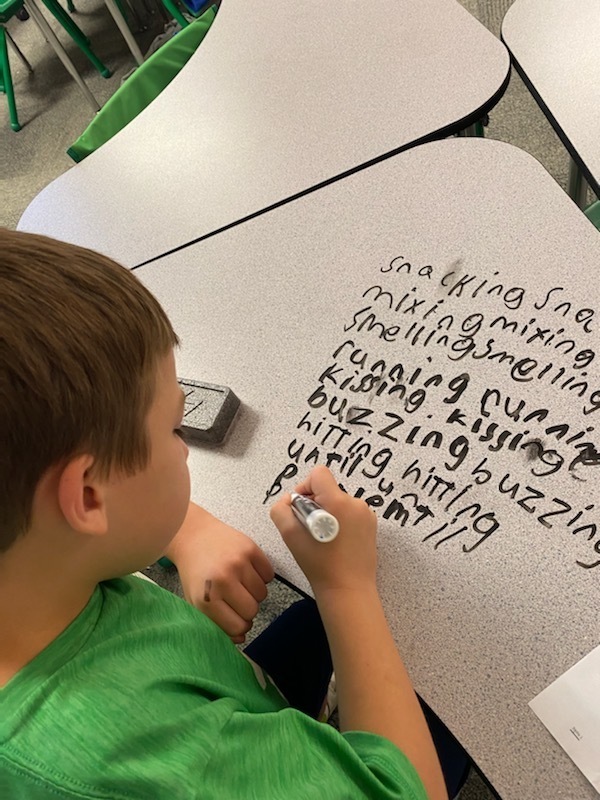 snacking sna
mixing mixing
smelling smelling
running runnin
kissing. kissing
buzzing buzzing
hitting hitting
until until